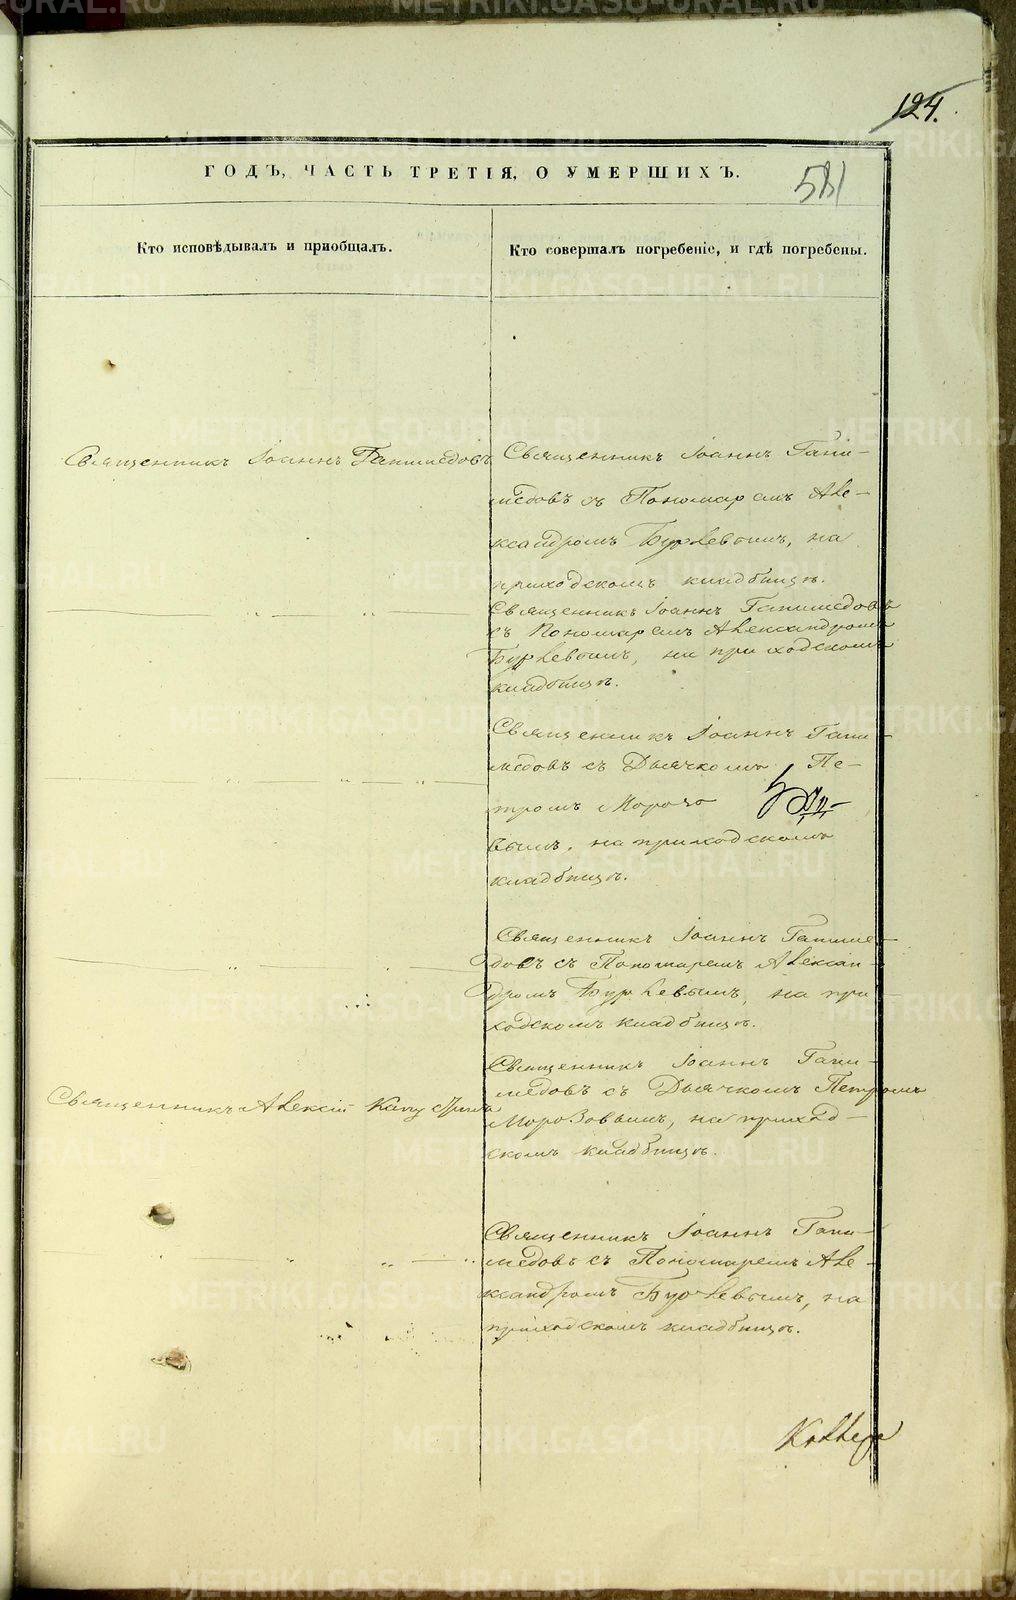 124.
ГОДЪ, ЧАСТЬ ТРЕТІЯ, О УМЕРШИХЪ.
581
Кто исповѣдывалъ и пріобщалъ.
Кто совершалъ погребеніе, и гдѣ погребены.
Священникъ Іоаннъ Ганимедовъ
Священникъ Іоаннъ Гани-
медовъ съ Пономаремъ Але-
ксандромъ Бурлевымъ, на
приходскомъ кладбищѣ.
Священникъ Іоаннъ Ганимедовъ
съ Пономаремъ Александромъ
Бурлевымъ, на приходскомъ
кладбищѣ.
Священникъ Іоаннъ Гани-
медовъ съ Дьячкомъ Пе-
тромъ Морозо
вымъ, на приходскомъ
кладбищѣ.
Священникъ Іоаннъ Ганиме-
довъ съ Пономаремъ Алексан-
дромъ Бурлевымъ, на при
ходскомъ кладбищѣ.
Священникъ Алексій
Священникъ Іоаннъ Гани-
медовъ съ Дьячкомъ Петромъ
Морозовымъ, на приход-
скомъ кладбищѣ.
Священникъ Іоаннъ Гани-
медовъ съ Пономаремъ Але-
ксандромъ Бурлевымъ, на
приходскомъ кладбищѣ.
METRIKI.GASO-URAL.RU